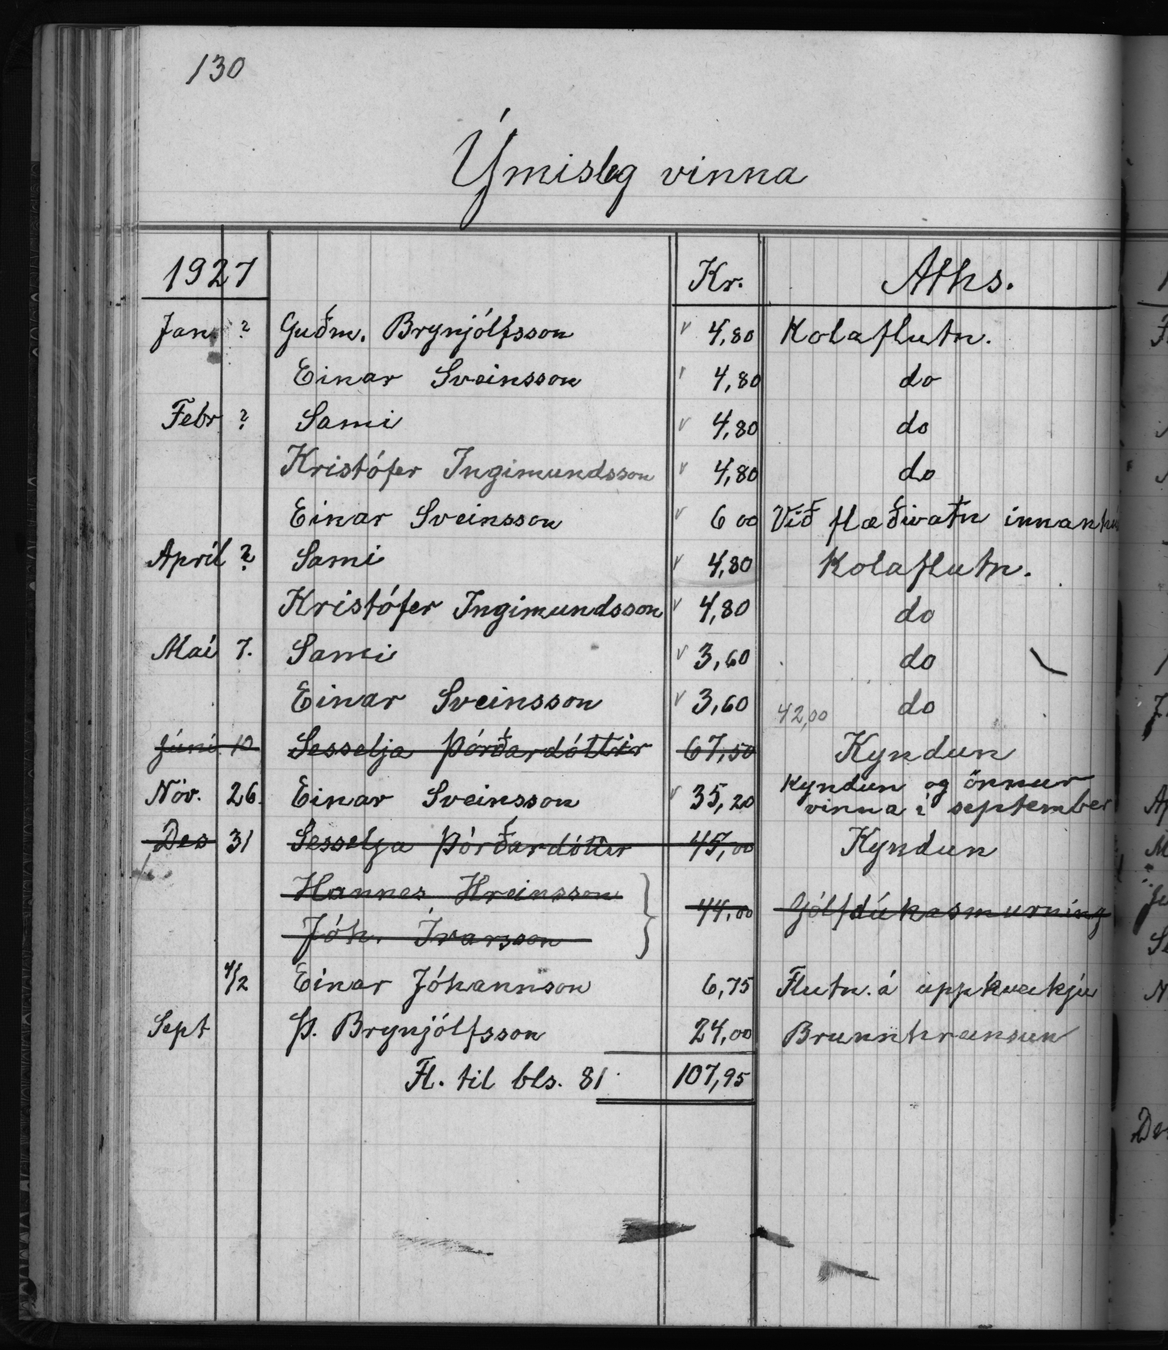 130
Ýmisleg vinna
1927 Kr. Aths.
Jan. ? Guðm. Brynjólfsson 4,80 Kolaflutn.
Einar Sveinsson 4,80 do
Febr ? Sami 4,80 do
Kristófer Ingimundsson 4,80 do
Einar Sveinsson 6 00 Við flæðivatn innanhus
Apríl ? Sami 4,80 Kolaflutn.
Kristófer Ingimundsson 4,80 do
Maí 7. Sami 3,60 do
Einar Sveinsson 3,60 42,00 do
Júní 10 Sesselja Þórðardóttir 67,50 Kyndun
Nóv. 26. Einar Sveinsson 35,20 Kyndun og önnur
vinna í september
Des 31 Sesselja Þórðardóttir 45,00 Kyndun
Hannes Hreinsson
44,00 Gólfdúkasmurning
Jóh. Ívarsson
4/2 Einar Jóhannson 6,75 Flutn. á uppkveikju
Sept Þ. Brynjólfsson 24,00 Brunnhreinsun
Fl. til bls. 81 107,95